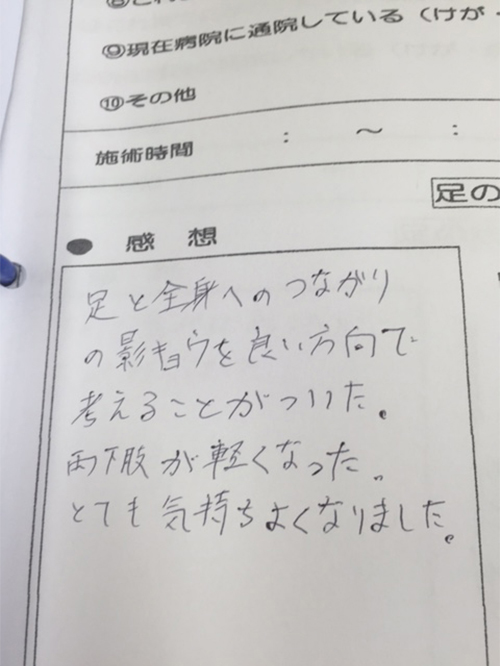 ⑨現在病院に通院している(けが・
⑩その他
施術時間 : ~ :
足の
● 感想
足と全身へのつながり
の影キョウを良い方向で
考えることがついた。
両下肢が軽くなった。
とても気持ちよくなりました。